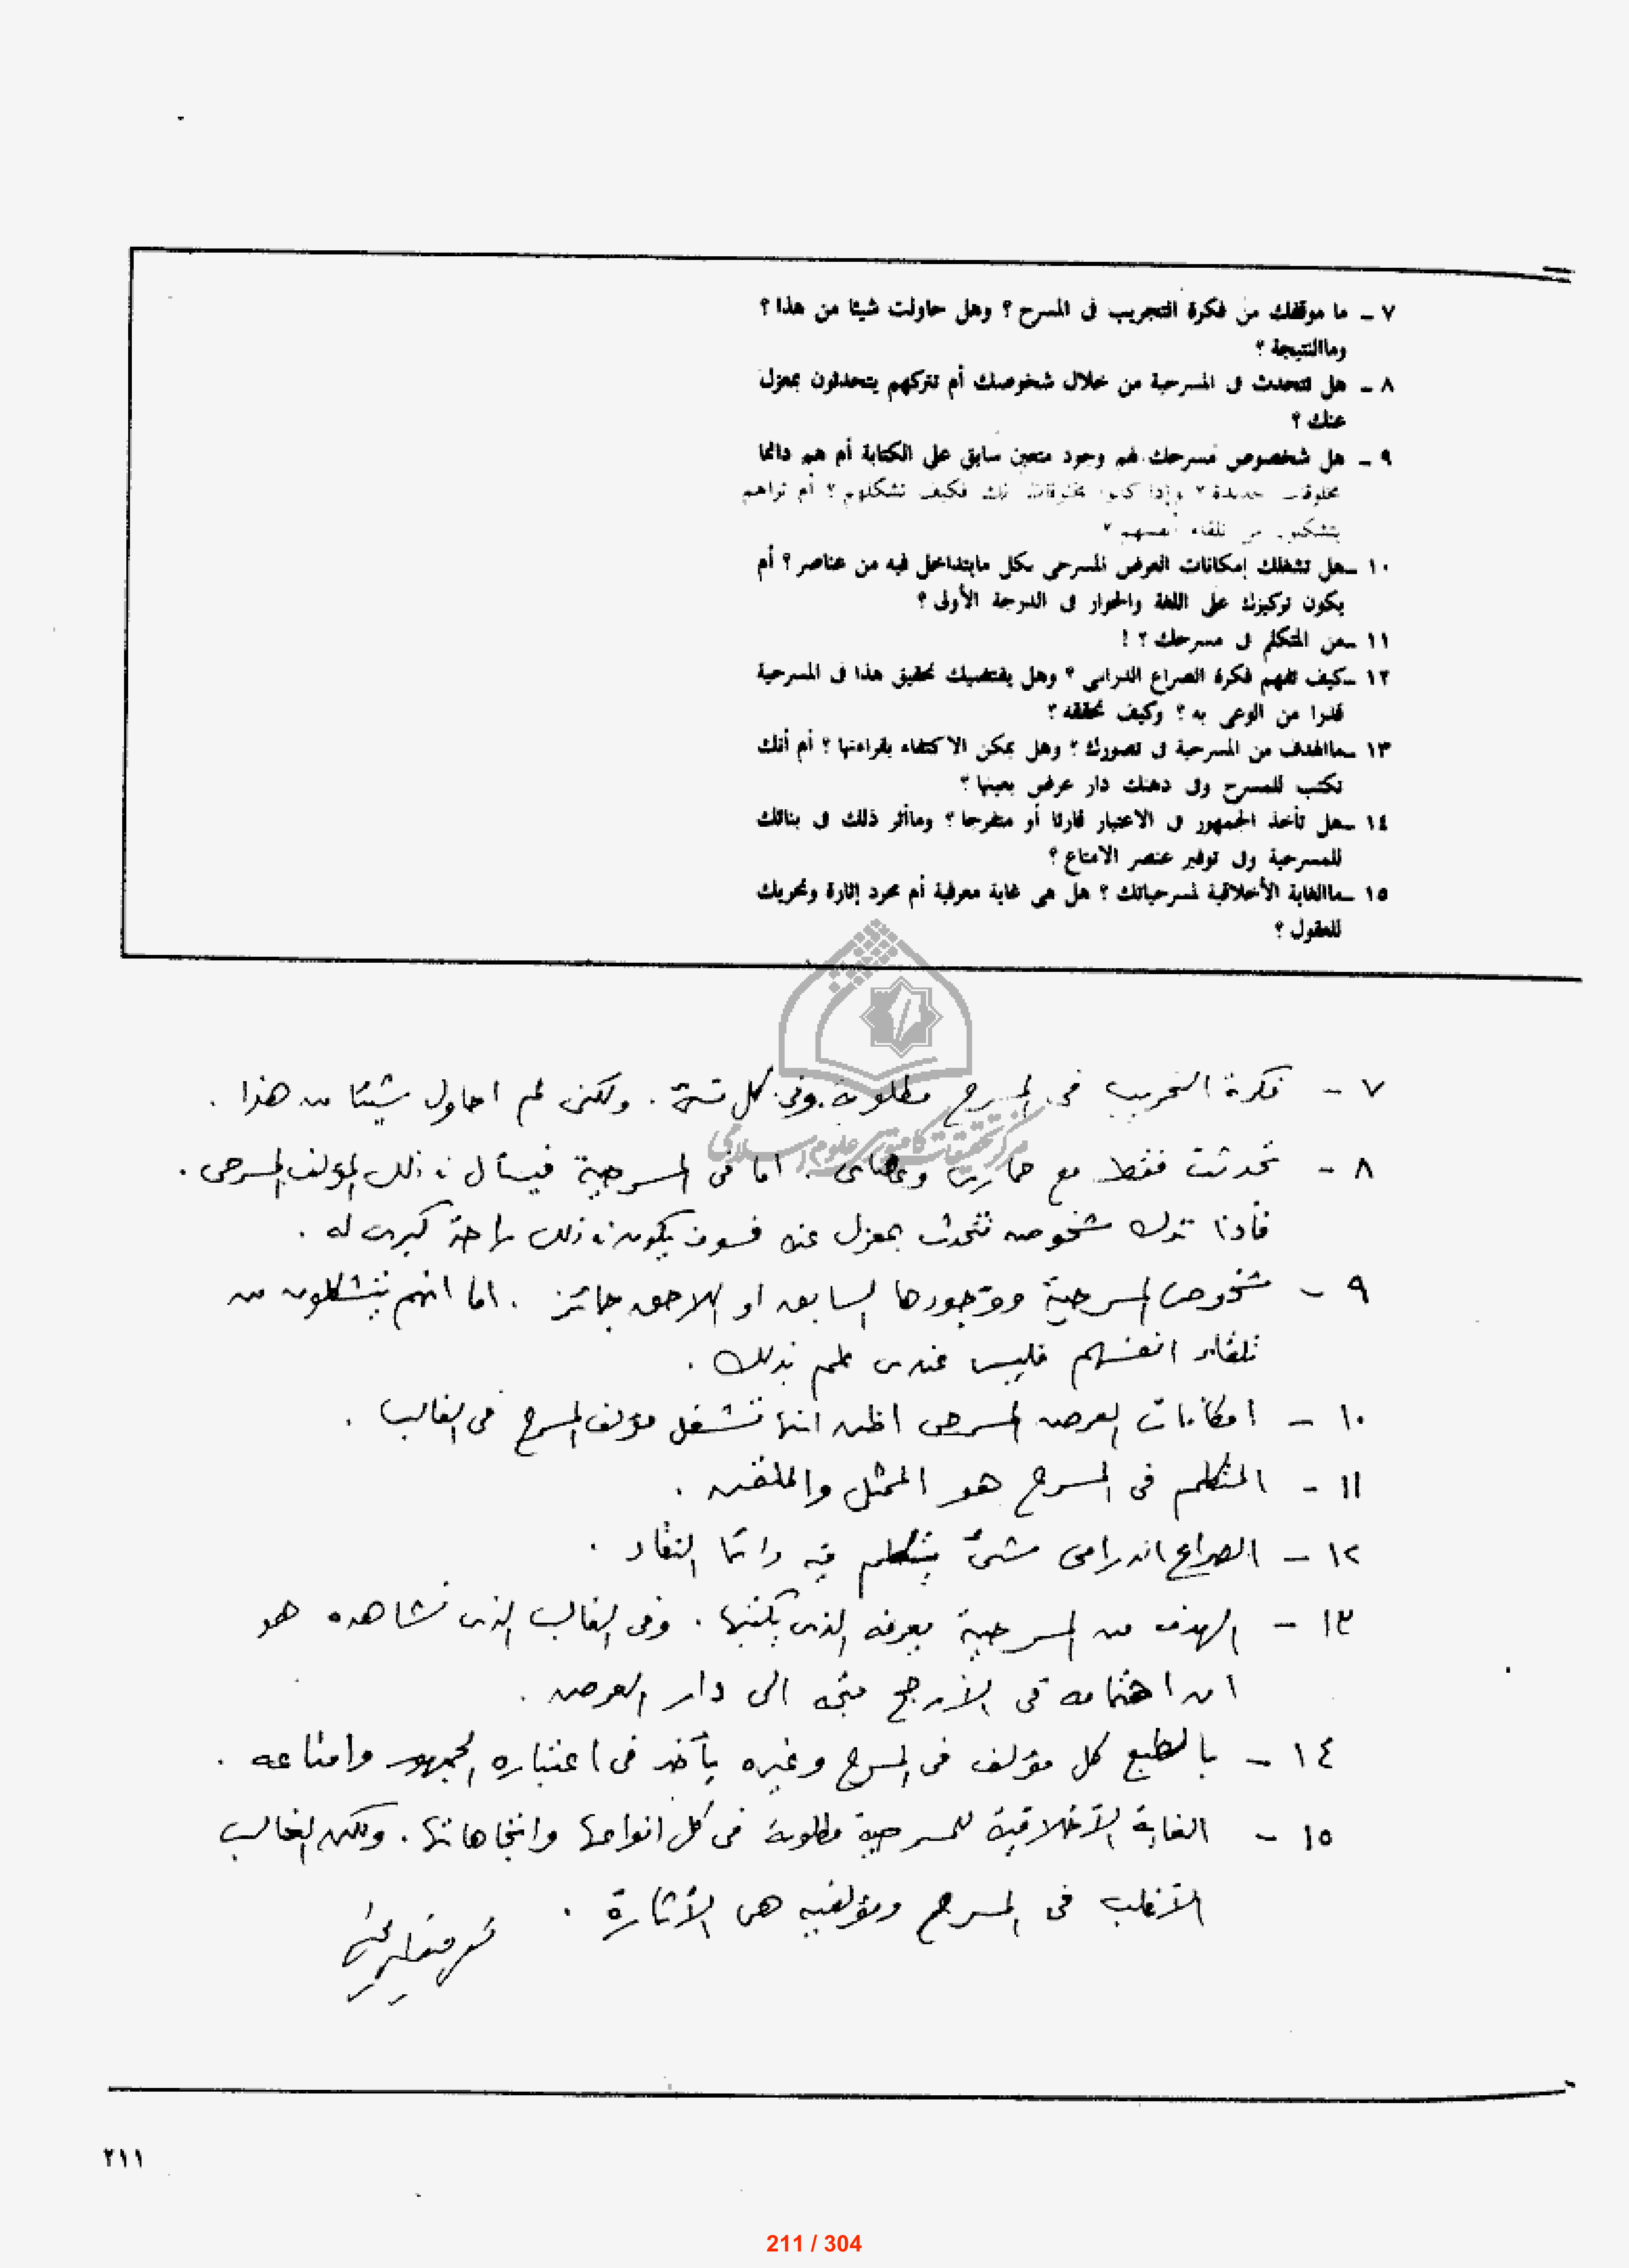 ٧ - ما موقفك من فكرة التجريب فى المسرح ؟ وهل حاولت شيئا من هذا ؟
وماالنتيجة ؟
٨ - هل تتحدث فى المسرحية من خلال شخوصك أم تتركهم يتحدثون بمعزل
عنك ؟
٩ - هل شخصوص مسرحك لهم وجود متعين سابق على الكتابة أم هم دائما
مخلوقات جديدة ؟ وإذا كانوا مخلوقات لك فكيف تشكلهم ؟ أم تراهم
يتشكلون من تلقاء أنفسهم ؟
١٠ -هل تشغلك إمكانات العرض المسرحى بكل مايتداخل فيه من عناصر ؟ أم
يكون تركيزك على اللغة والحوار فى الدرجة الأولى ؟
١١ -من المتكلم فى مسرحك ؟ !
١٢ -كيف تفهم فكرة الصراع الدرامى ؟ وهل يقتضيك تحقيق هذا فى المسرحية
قدرا من الوعى به ؟ وكيف تحققه ؟
١٣ -ماالهدف من المسرحية فى تصورك ؟ وهل يمكن الاكتفاء بقراءتها ؟ أم أنك
تكتب للمسرح وفى ذهنك دار عرض بعينها ؟
١٤ -هل تأخذ الجمهور فى الاعتبار قارئا أو متفرجا ؟ وماأثر ذلك فى بنائك
للمسرحية وفى توفير عنصر الامتاع ؟
١٥ -ماالغاية الأخلاقية لمسرحياتك ؟ هل هى غاية معرفية أم مجرد إثارة وتحريك
للعقول ؟
٧ - فكرة التجريب فى المسرح مطلوبة وفى كل شئ . ولكنى لم احاول شيئا من هذا .
مركز تحقيقات كامپيوترى علوم اسلامى
٨ - تحدثت فقط مع حمارى وعصاى . اما فى المسرحية فيسأل فى ذلك المؤلف المسرحى .
فأذا ترك شخوصه تتحدث بمعزل عنه فسوف يكون فى ذلك راحة كبرى له .
٩ - شخوص المسرحية ووجودها السابق او اللاحق جائز . اما انهم يتشكلون من
تلقاء انفسهم فليس عندى علم بذلك .
١٠ - امكانات العرض المسرحى اظن انها تشغل مؤلف المسرح فى الغالب .
١١ - المتكلم فى المسرح هو الممثل والملقن .
١٢ - الصراع الدرامى شئ يتكلم فيه دائما النقاد .
١٣ - الهدف من المسرحية يعرفه الذى يكتبها . وفى الغالب الذى نشاهده هو
ان اهتمامه فى الأرجح متجه الى دار العرض .
١٤ - بالطبع كل مؤلف فى المسرح وغيره يأخذ فى اعتباره الجمهور وامتاعه .
١٥ - الغاية الأخلاقية للمسرحية مطلوبة فى كل انواعها واتجاهاتها . ولكن الغالب
الأغلب فى المسرح ومؤلفيه هى الأثارة .
٢١١
211 / 304